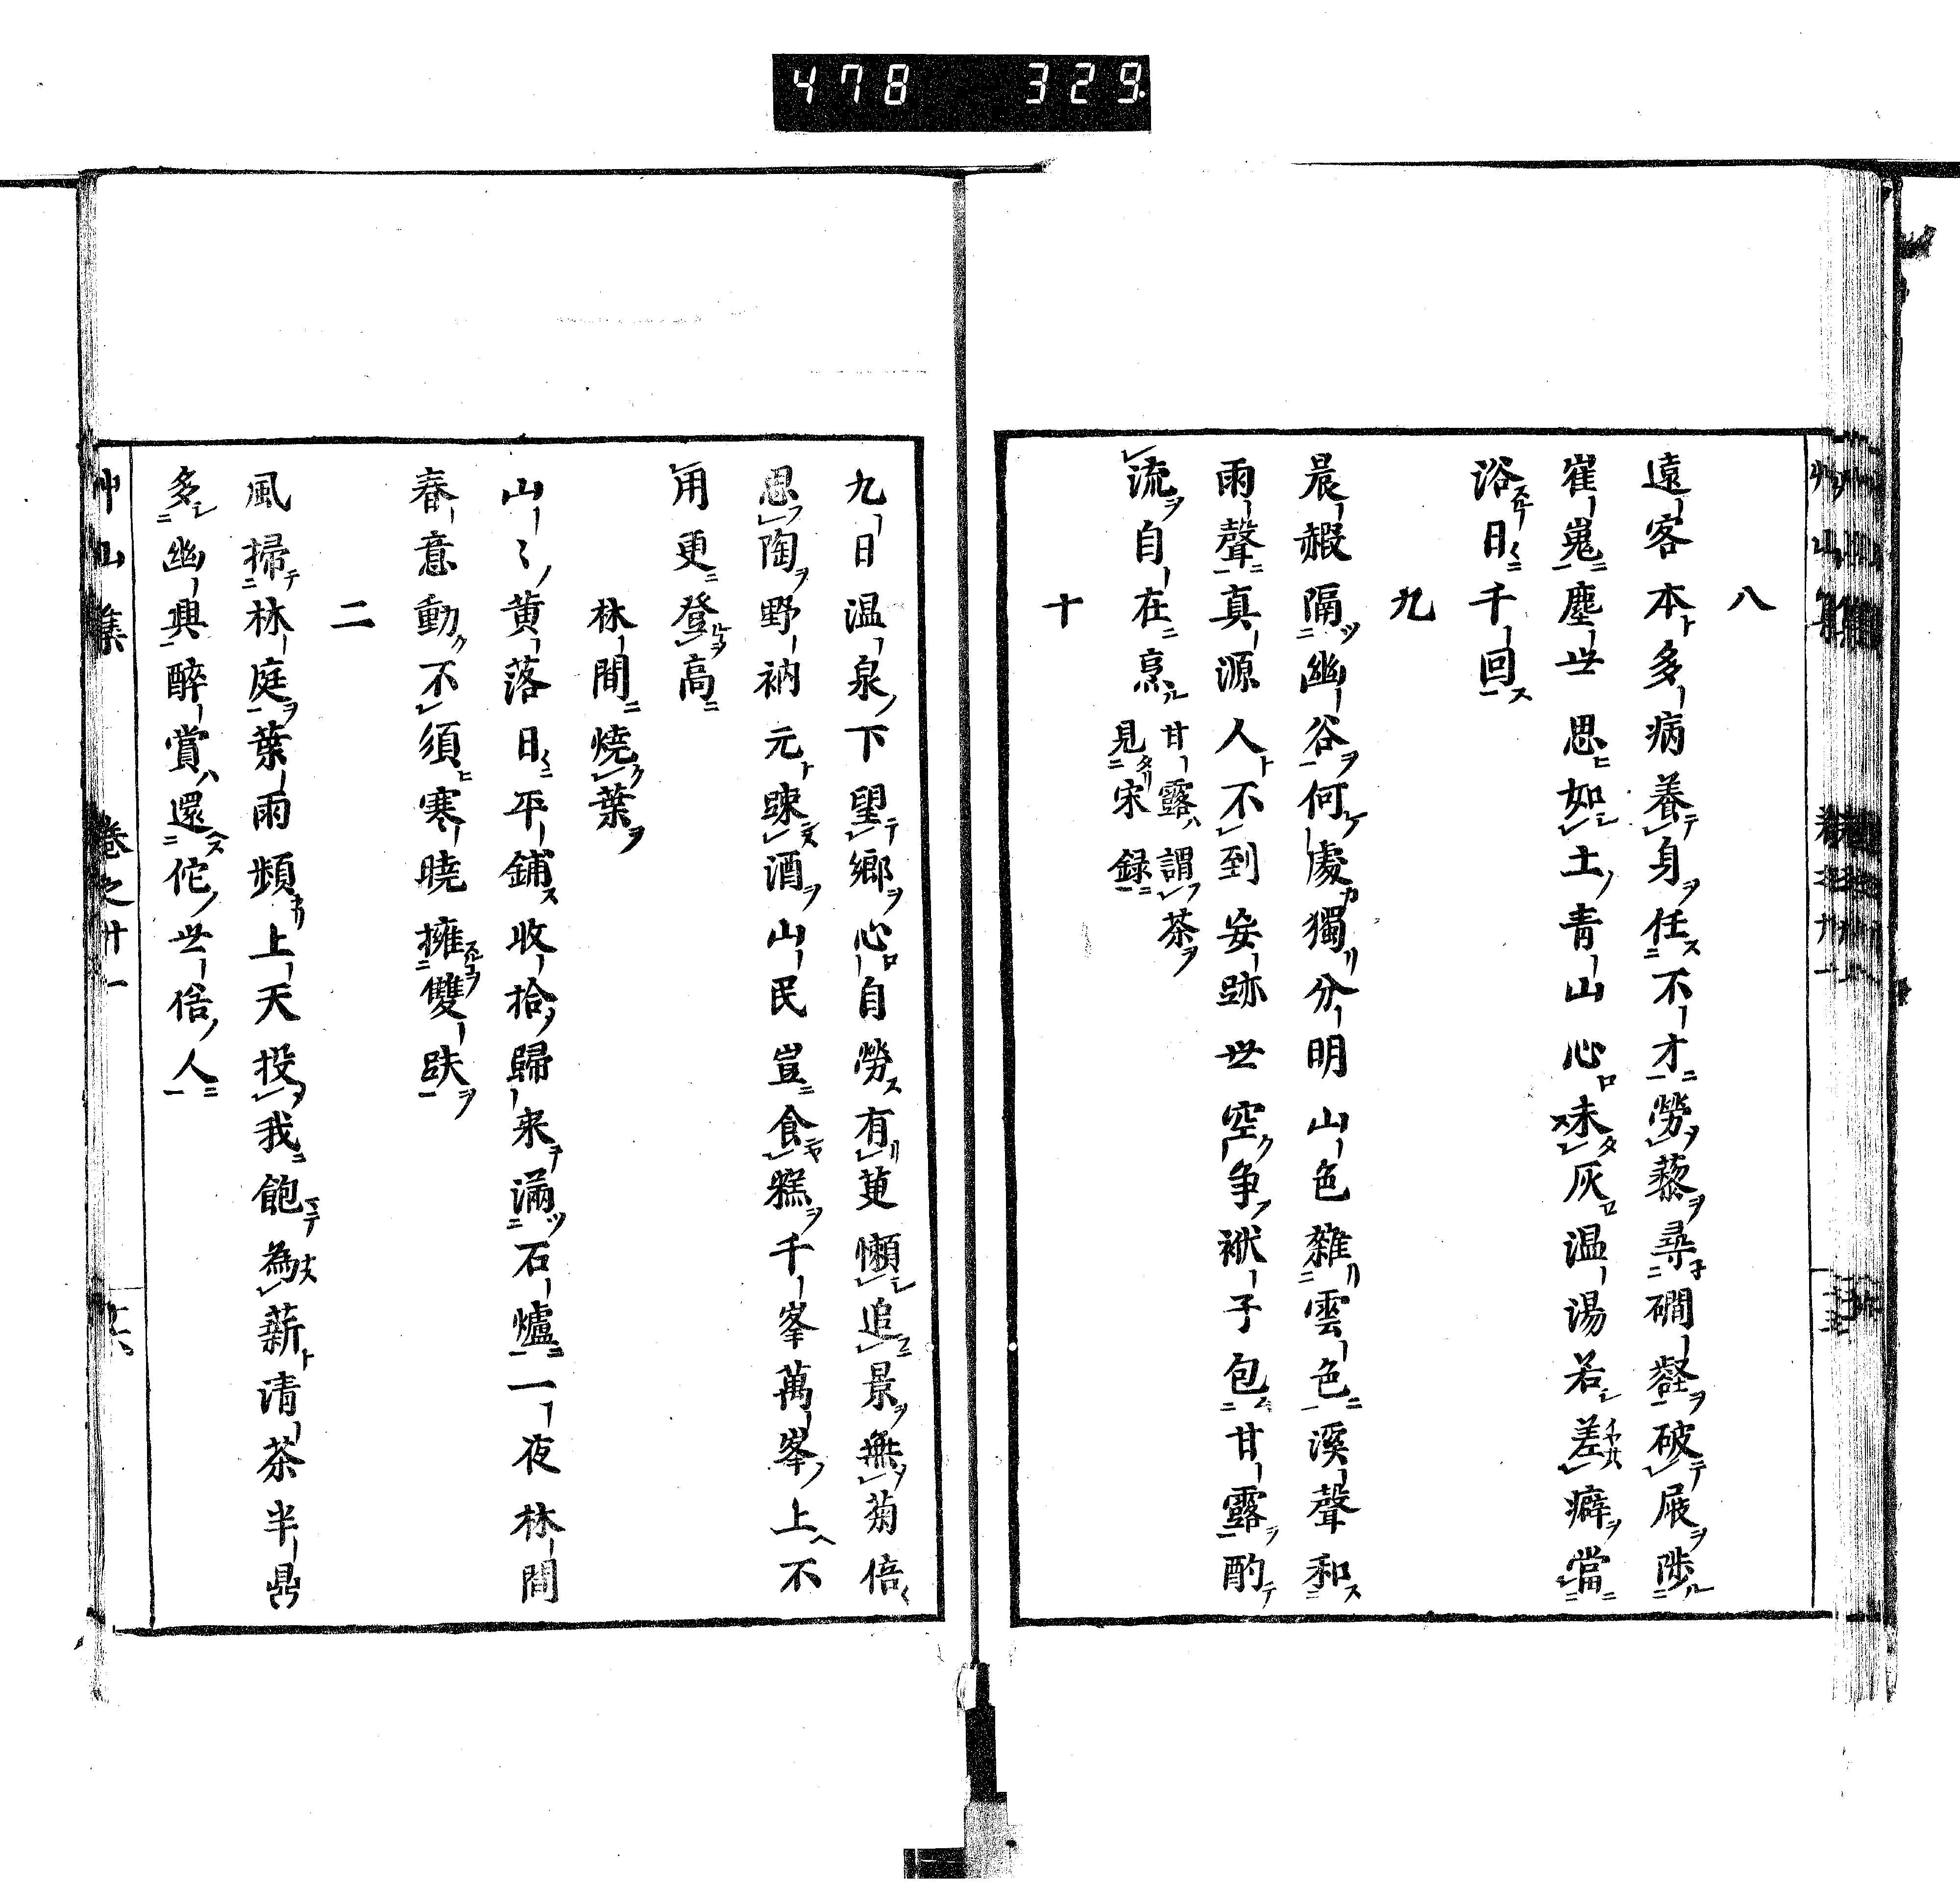 478 329
八
遠客本多病養身任不才勞藜尋磵壑破屐陟
崔嵬塵世思如土青山心未灰温湯若差癖當
浴日千回
九
晨縠隔幽谷何處獨分明山色雜雲色溪聲和
雨聲真源人不到妄跡世空争袱子包甘露酌
流自在烹
甘露謂茶
見宋録
十
九日温泉下望郷心自勞有萸懶追景無菊倍
思陶野衲元疎酒山民豈食糕千峯萬峯上不
用更登高
林間燒葉
山〻黄落日平鋪收拾歸来滿石爐一夜林間
春意動不須寒曉擁雙趺
二
風掃林庭葉雨頻上天投我飽為薪清茶半鼎
多幽興醉賞還佗世俗人
艸山集 卷之廿一